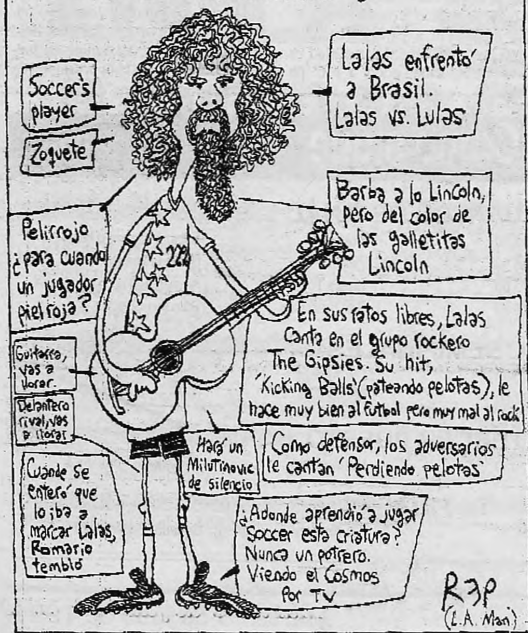 Soccer's
player
Zoquete
Lalas enfrentó
a Brasil.
Lalas vs. Lulas
Pelirrojo
¿para cuando
un jugador
piel roja?
Barba a lo Lincoln,
pero del color de
las galletitas
Lincoln
222
En sus ratos libres, Lalas
canta en el grupo rockero
The Gipsies. Su hit,
"Kicking Balls" (pateando pelotas), le
hace muy bien al futbol pero muy mal al rock
Guitarra,
vas a
llorar.
Delantero
rival, vas
a llorar
Hará un
Milutinovic
de silencio
Como defensor, los adversarios
le cantan 'Perdiendo pelotas'
Cuando se
enteró que
lo iba a
marcar Lalas,
Romario
tembló
¿Adonde aprendió a jugar
Soccer esta criatura?
Nunca un potrero.
Viendo el Cosmos
por TV
R3P
(L.A. Man)